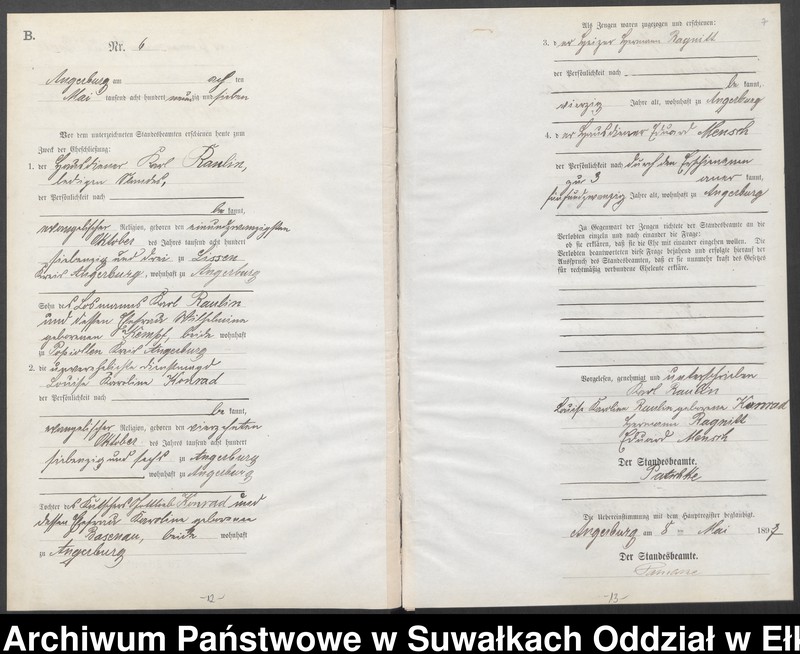 B.
Nr. 6
Angerburg am acht ten
Mai tausend acht hundert neunzig und sieben
Vor dem unterzeichneten Standesbeamten erschienen heute zum
Zweck der Eheschließung:
1. der Hausdiener Karl Raulin,
ledigen Standes,
der Persönlichkeit nach
be kannt,
evangelischer Religion, geboren den einundzwanzigsten
Oktober des Jahres tausend acht hundert
siebenzig und drei zu Lissen
Kreis Angerburg, wohnhaft zu Angerburg
Sohn des Losmanns Karl Raulin
und dessen Ehefrau Wilhelmine
geborenen Kempf, beide wohnhaft
zu Kreis Angerburg
2. die unverehelichte Dienstmagd
Louise Karoline Konrad
der Persönlichkeit nach
be kannt,
evangelischer Religion, geboren den vierzehnten
Oktober des Jahres tausend acht hundert
siebenzig und sechs zu Angerburg
wohnhaft zu Angerburg
Tochter des Kutschers Gottlieb Konrad und
dessen Ehefrau Karoline geborenen
beide wohnhaft
zu Angerburg
-12-
7
Als Zeugen waren zugezogen und erschienen:
3. der Heizer Hermann Ragnitt
der Persönlichkeit nach
be kannt,
vierzig Jahre alt, wohnhaft zu Angerburg
4. der Hausdiener Eduard Mensch
der Persönlichkeit nach durch den Erschienenen
zu 3 aner kannt,
fünfundzwanzig Jahre alt, wohnhaft zu Angerburg
In Gegenwart der Zeugen richtete der Standesbeamte an die
Verlobten einzeln und nach einander die Frage:
ob sie erklären, daß sie die Ehe mit einander eingehen wollen. Die
Verlobten beantworteten diese Frage bejahend und erfolgte hierauf der
Ausspruch des Standesbeamten, daß er sie nunmehr kraft des Gesetzes
für rechtmäßig verbundene Eheleute erkläre.
Vorgelesen, genehmigt und unterschrieben
Karl Raulin
Louise Karline Raulin geborene Konrad
Hermann Ragnitt
Eduard Mensch
Der Standesbeamte.
Die Uebereinstimmung mit dem Hauptregister beglaubigt.
Angerburg am 8 ten Mai 1897
Der Standesbeamte.
-13-
Archiwum Państwowe w Suwałkach Oddział w Ełk